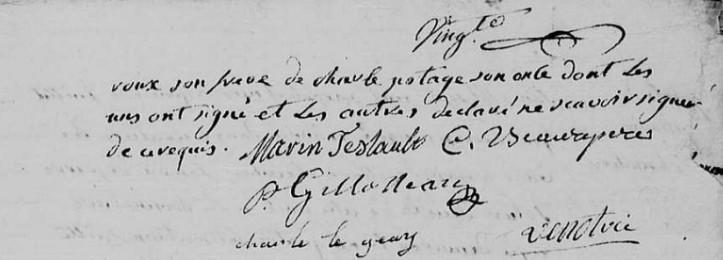 Vingt
roux son frere de charle potage son oncle dont les
uns ont signé et les autres declaré ne scavoir signer
de ce requis. Marin Teslault C. Beaurepere
P. Gillotteau
charle le geay